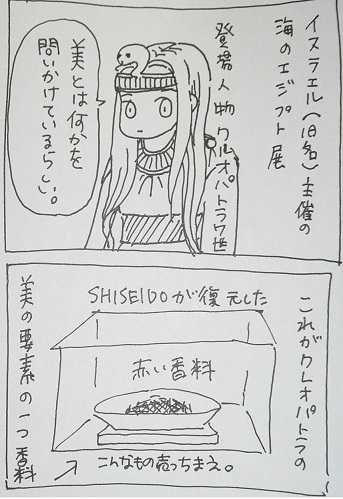 イスラエル(旧名)主催の
海のエジプト展
登場人物クレオパトラ7世
美とは何かを
問いかけているらしい。
これがクレオパトラの
SHISEIDOが復元した
赤い香料
こんなもの売っちまえ。
美の要素の一つ香料